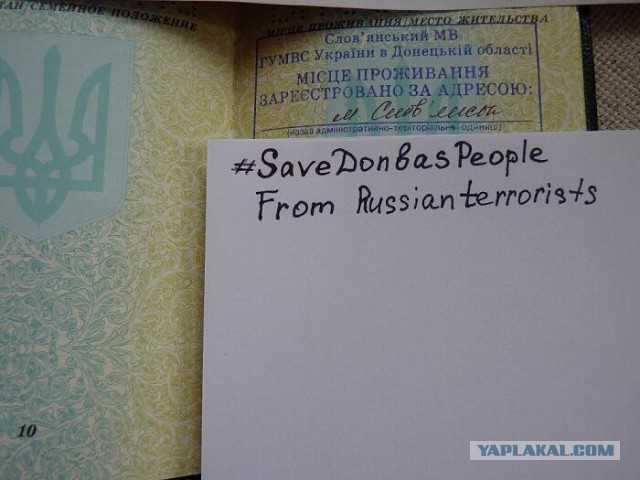 ТАН/СЕМЕЙНОЕ ПОЛОЖЕНИЕ
МІСЦЕ ПРОЖИВАННЯ/МЕСТО ЖИТЕЛЬСТВА
Слов'янський МВ
ГУМВС України в Донецькій області
МІСЦЕ ПРОЖИВАННЯ
ЗАРЕЄСТРОВАНО ЗА АДРЕСОЮ:
м.
(назва адміністративно-територіальної одиниці)
#SaveDonbasPeople
From Russianterrorists
10
YAPLAKAL.COM